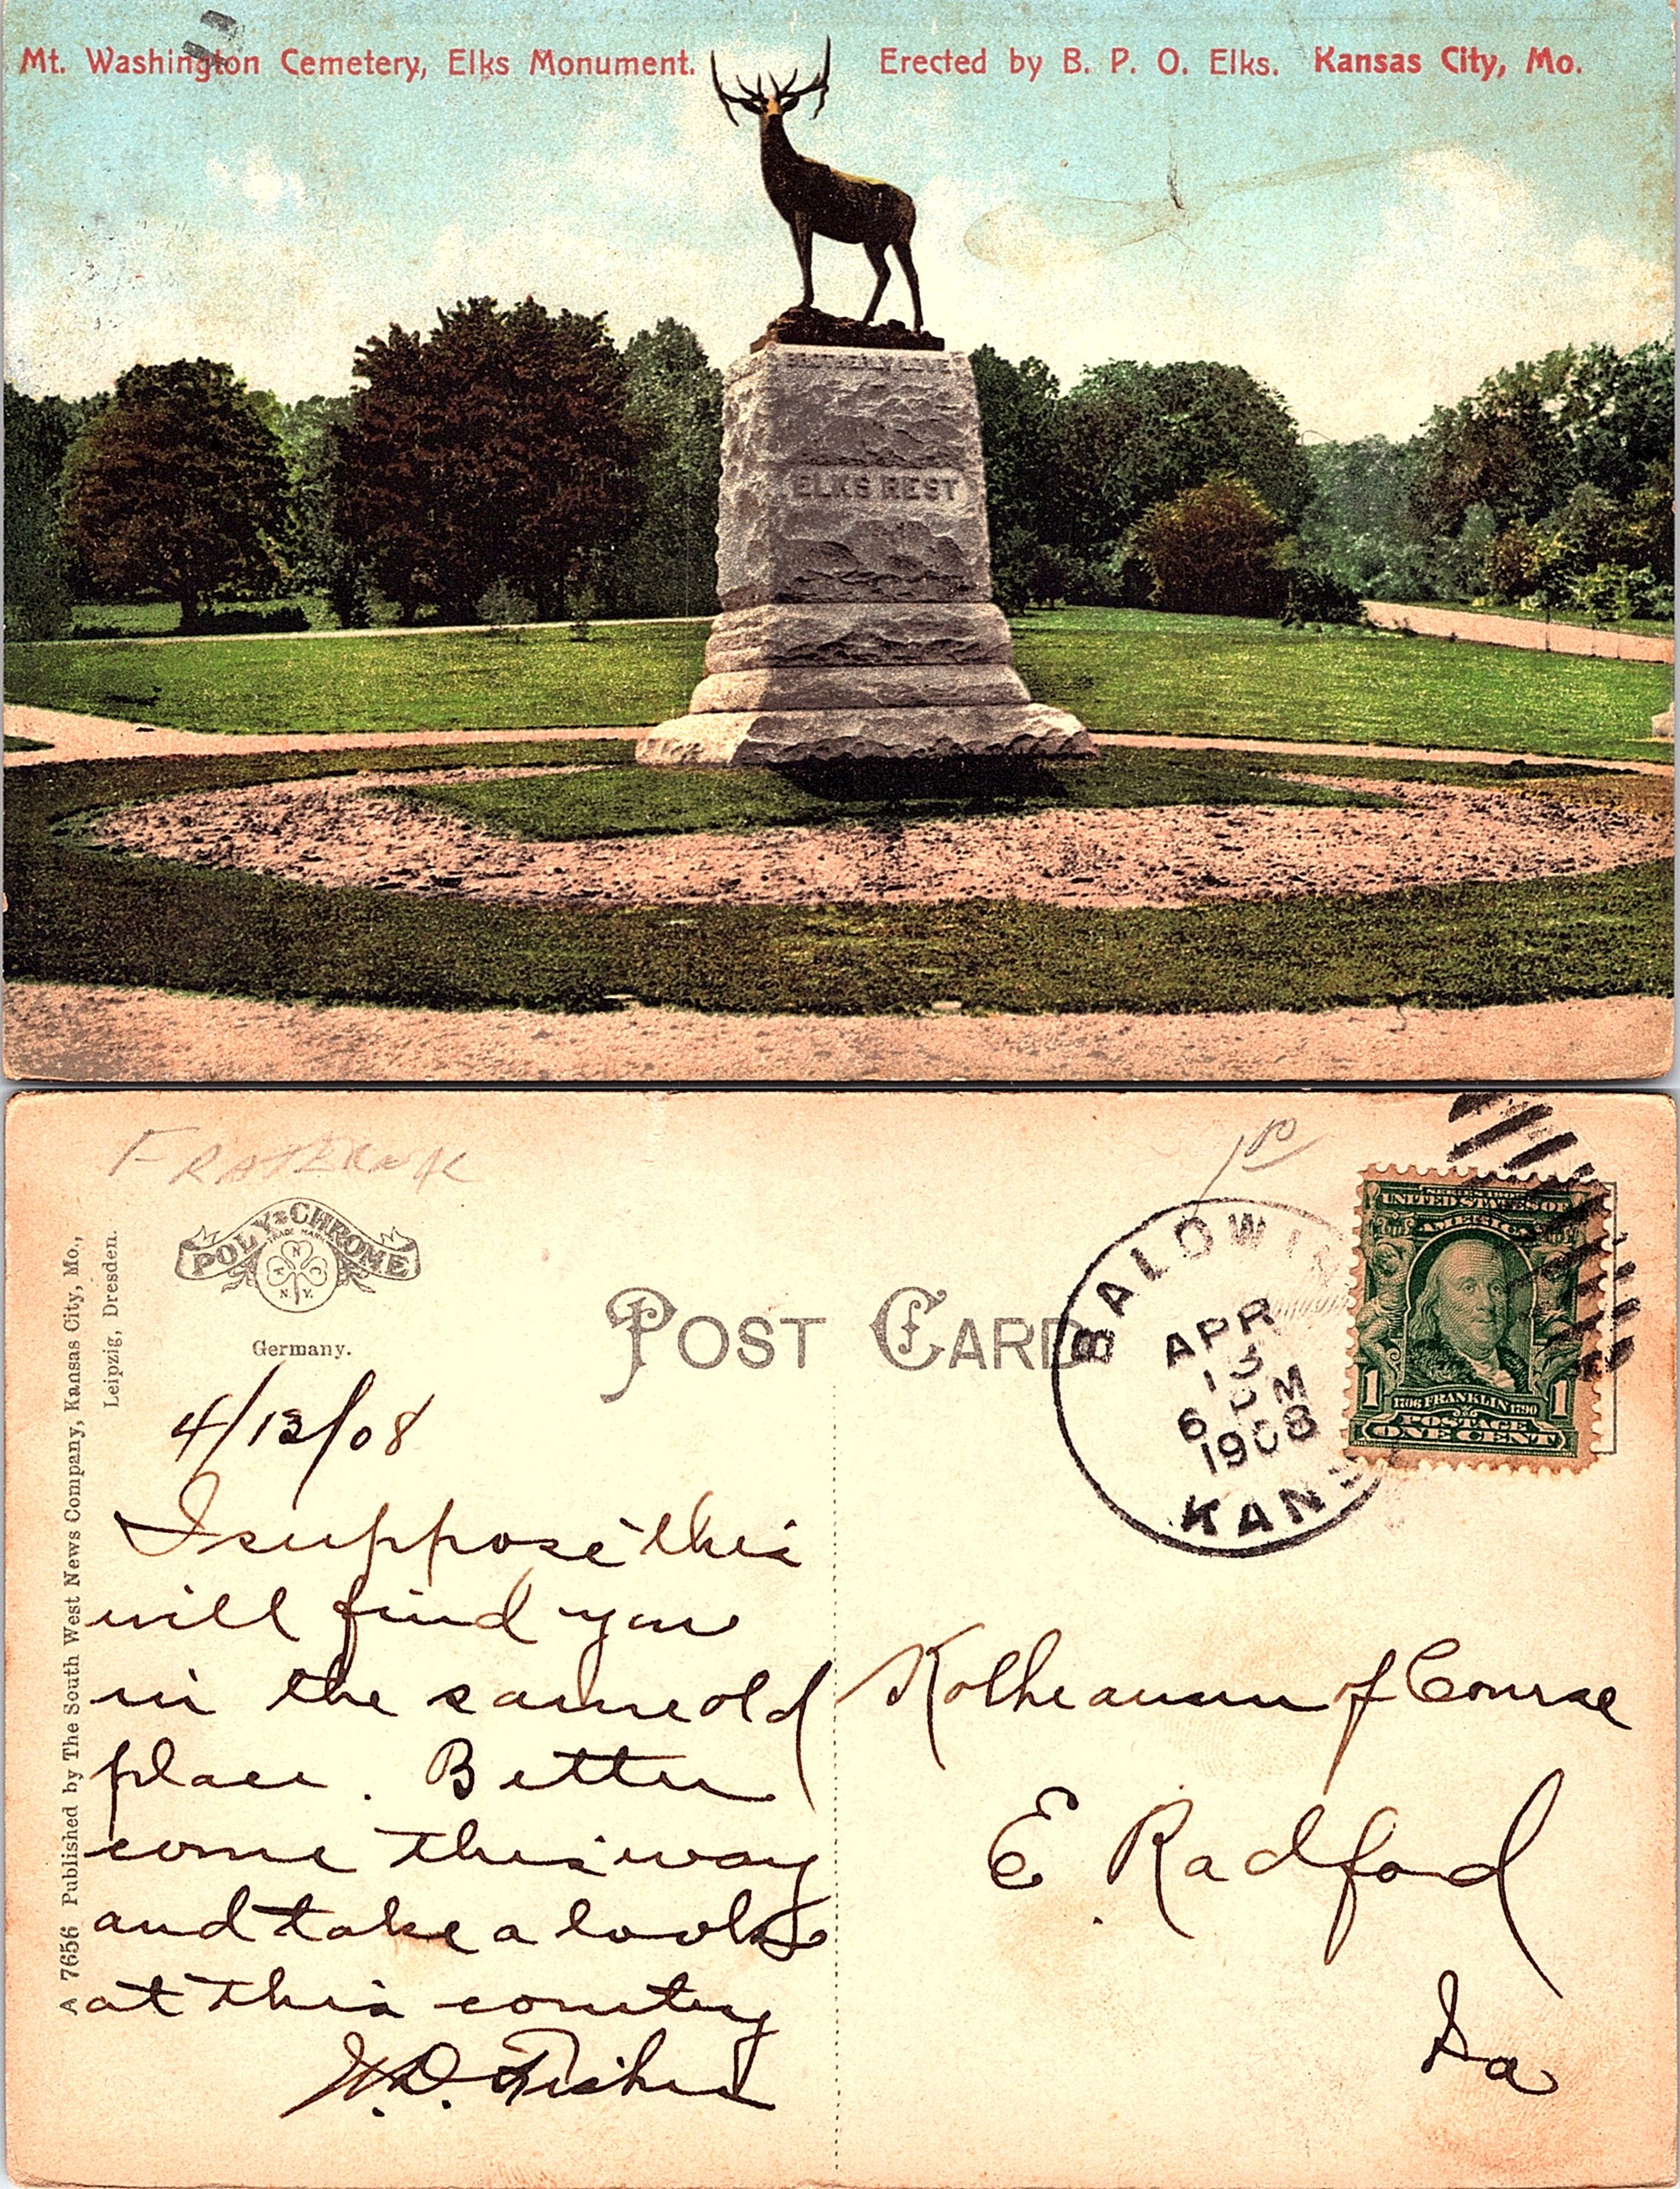 Mt. Washington Cemetery, Elks Monument. Erected by B. P. O. Elks. Kansas City, Mo.
BROTHERLY LOVE
ELKS REST
FRATERNAL
POLY-CHROME
TRADE MARK
A N C
N.Y.
Germany.
POST CARD
BALDWIN
APR
13
6 PM
1908
KANS
UNITED STATES OF
AMERICA
1 1706 FRANKLIN 1790 1
POSTAGE
ONE CENT
A 7656 Published by The South West News Company, Kansas City, Mo.,
Leipzig, Dresden.
4/13/08
I suppose this
will find you
in the same old
place. Better
come this way
and take a look
at this country
W.D. Fisher
of Course
E. Radford
Ia